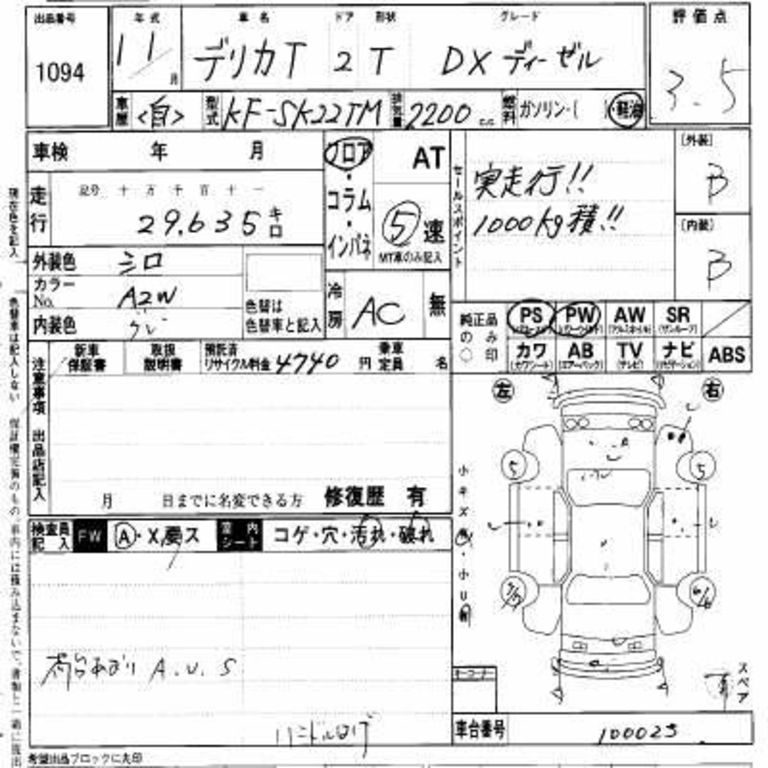 出品番号 年式 車名 ドア 形状 グレード 評価点
1094 11 月 デリカT 2 T DX ディーゼル 3.5
車歴 <自> 型式 KF-SK22TM 排気量 2200 c.c. 燃料 ガソリン・( ) ・軽油
車検 年 月 フロア AT
走行 記号 十 万 千 百 十 一
29.635 キロ
・コラム・インパネ 5 速
MT車のみ記入
セールスポイント
実走行!!
1000kg積!!
[外装]
B
[内装]
B
外装色 シロ
カラーNo. A2W
内装色 グレー
色替は
色替車と記入
冷房 AC 無
純正品の○み印 PS PW AW SR
カワ AB TV ナビ ABS
注意事項 出品店記入
新車保証書 取扱説明書 預託済リサイクル料金 4740 円 乗車定員 名
月 日までに名変できる方 修復歴 有
検査員記入 FW A・X,要ス 室内シート コゲ・穴・汚れ・破れ
左 右
5 5
小キズ
荷台あおり A.U.S
ハンドルはげ
スペア
車台番号 100025
希望出品ブロックに丸印
現在色を記入 色替車は記入しない